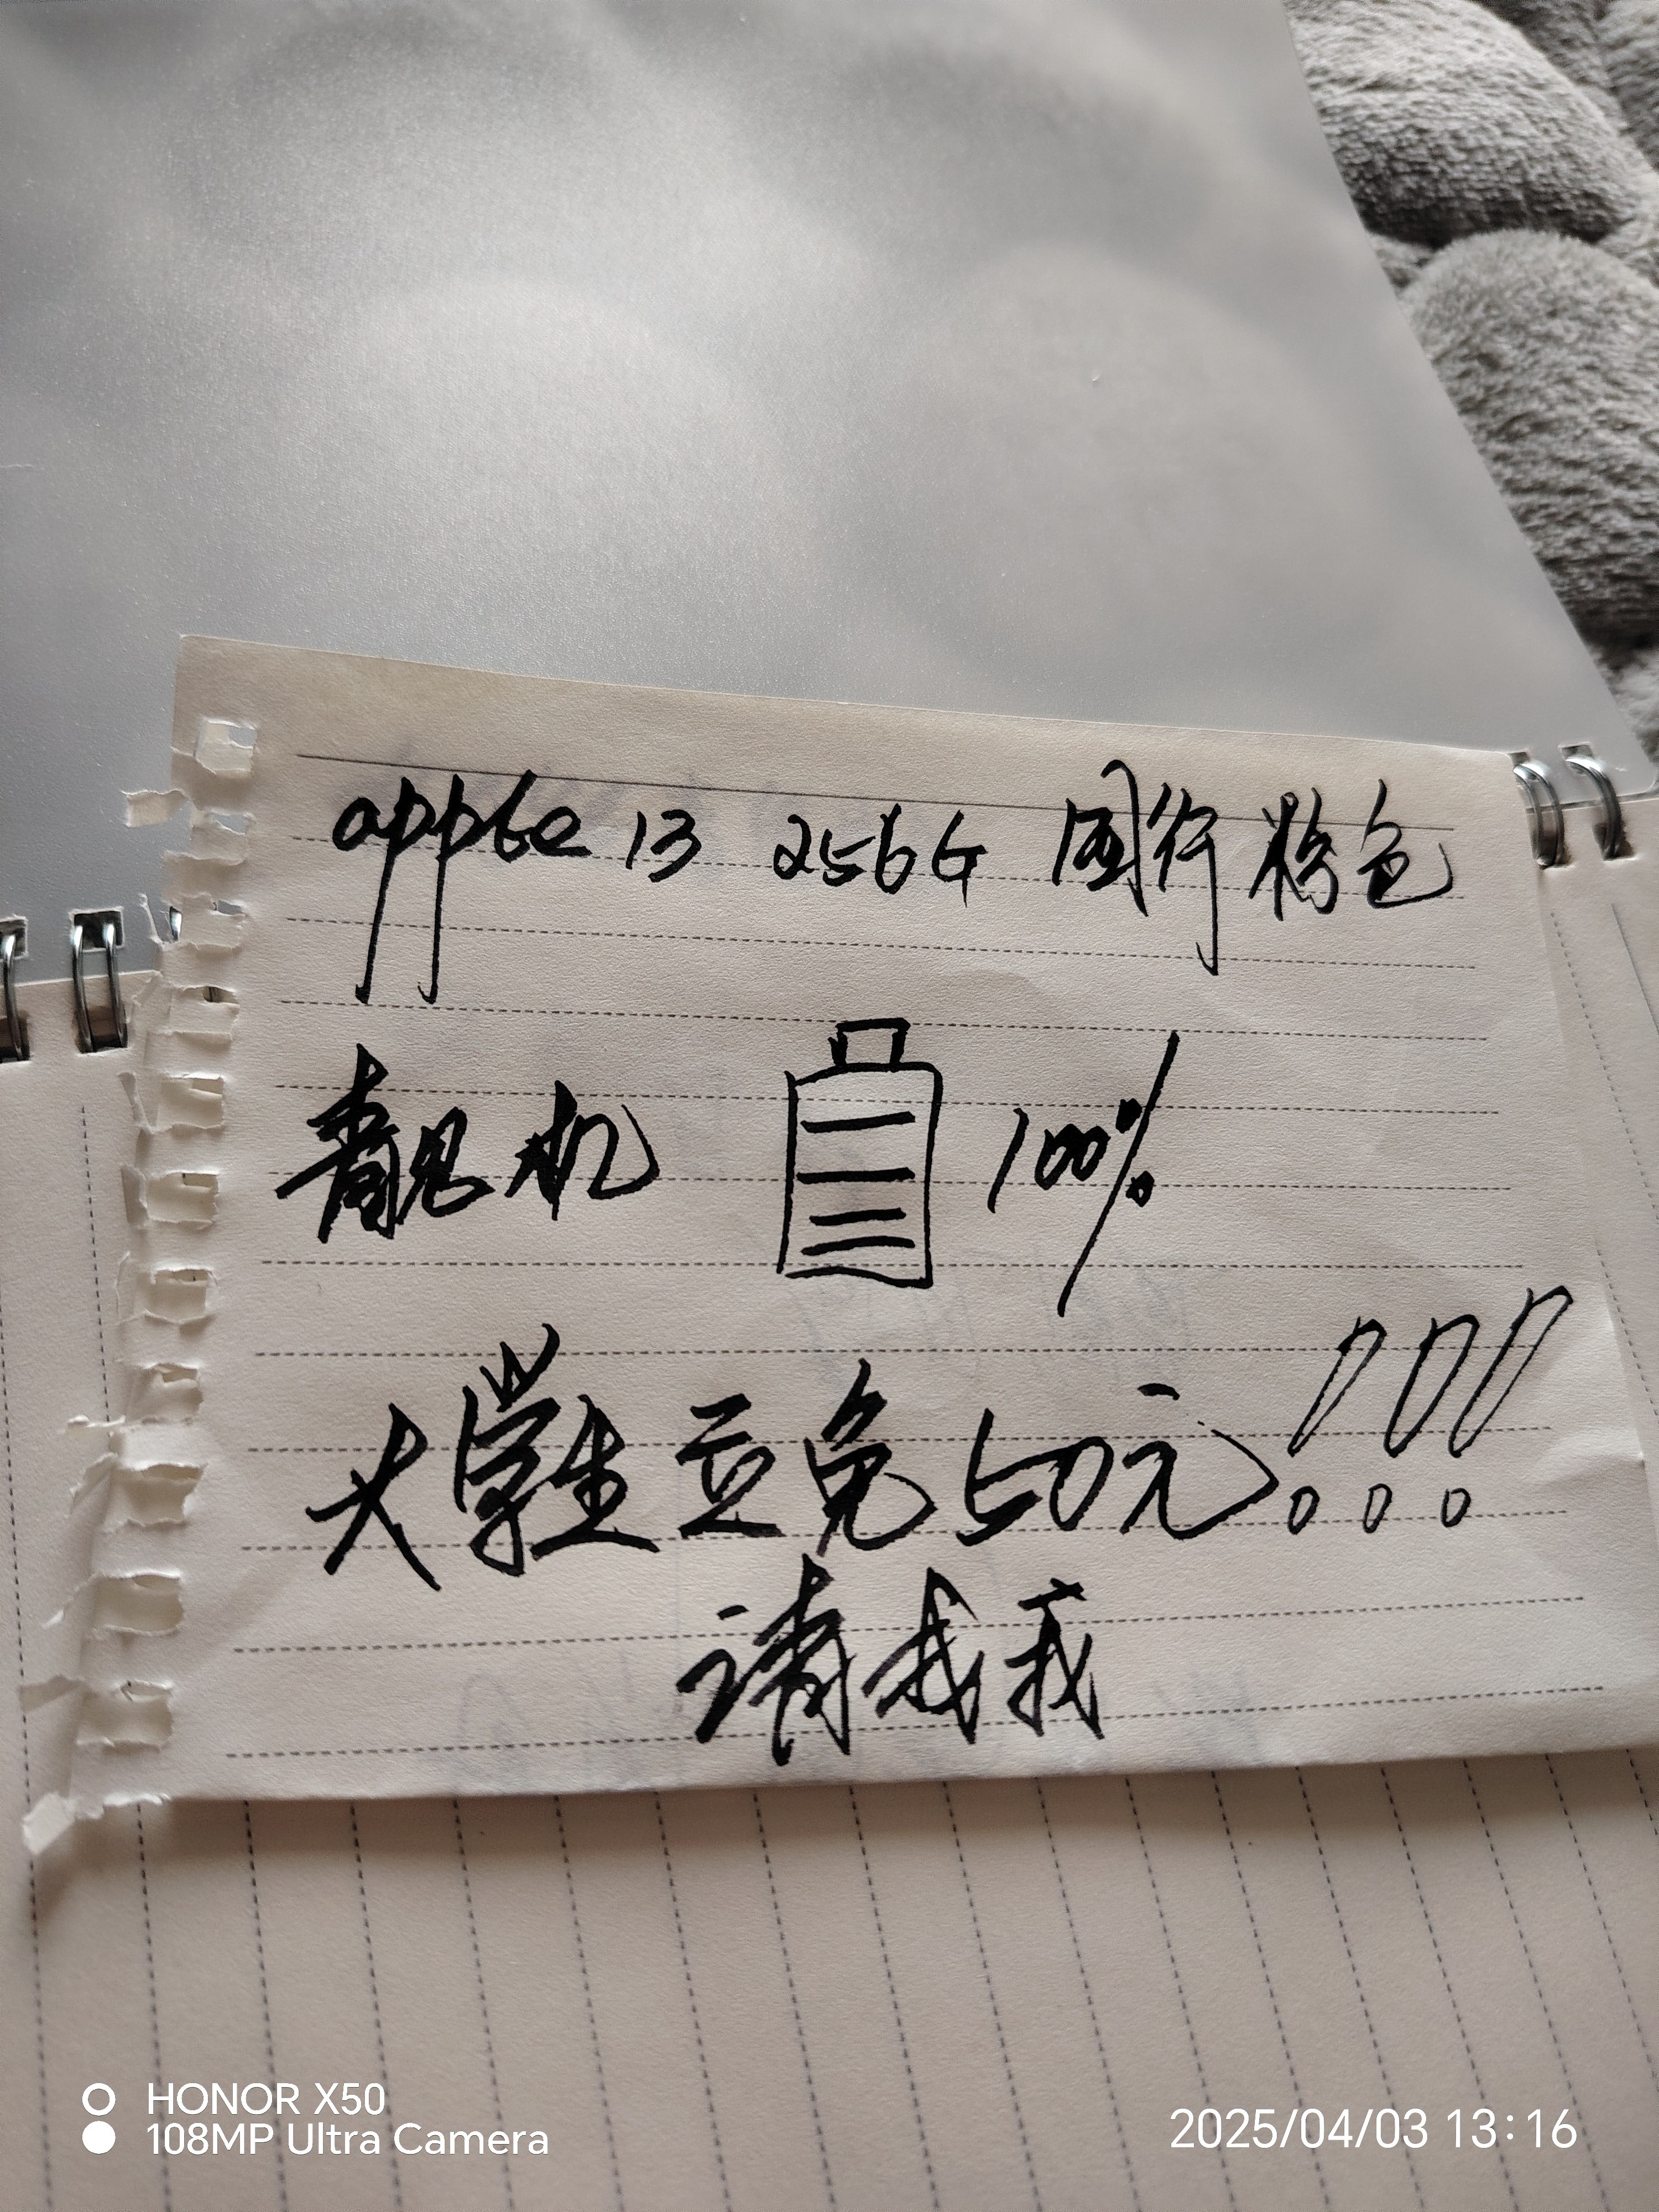 apple 13 256G 国行 粉色
靓机 100%
大学生立免50元!!!
请找我
HONOR X50
108MP Ultra Camera
2025/04/03 13:16